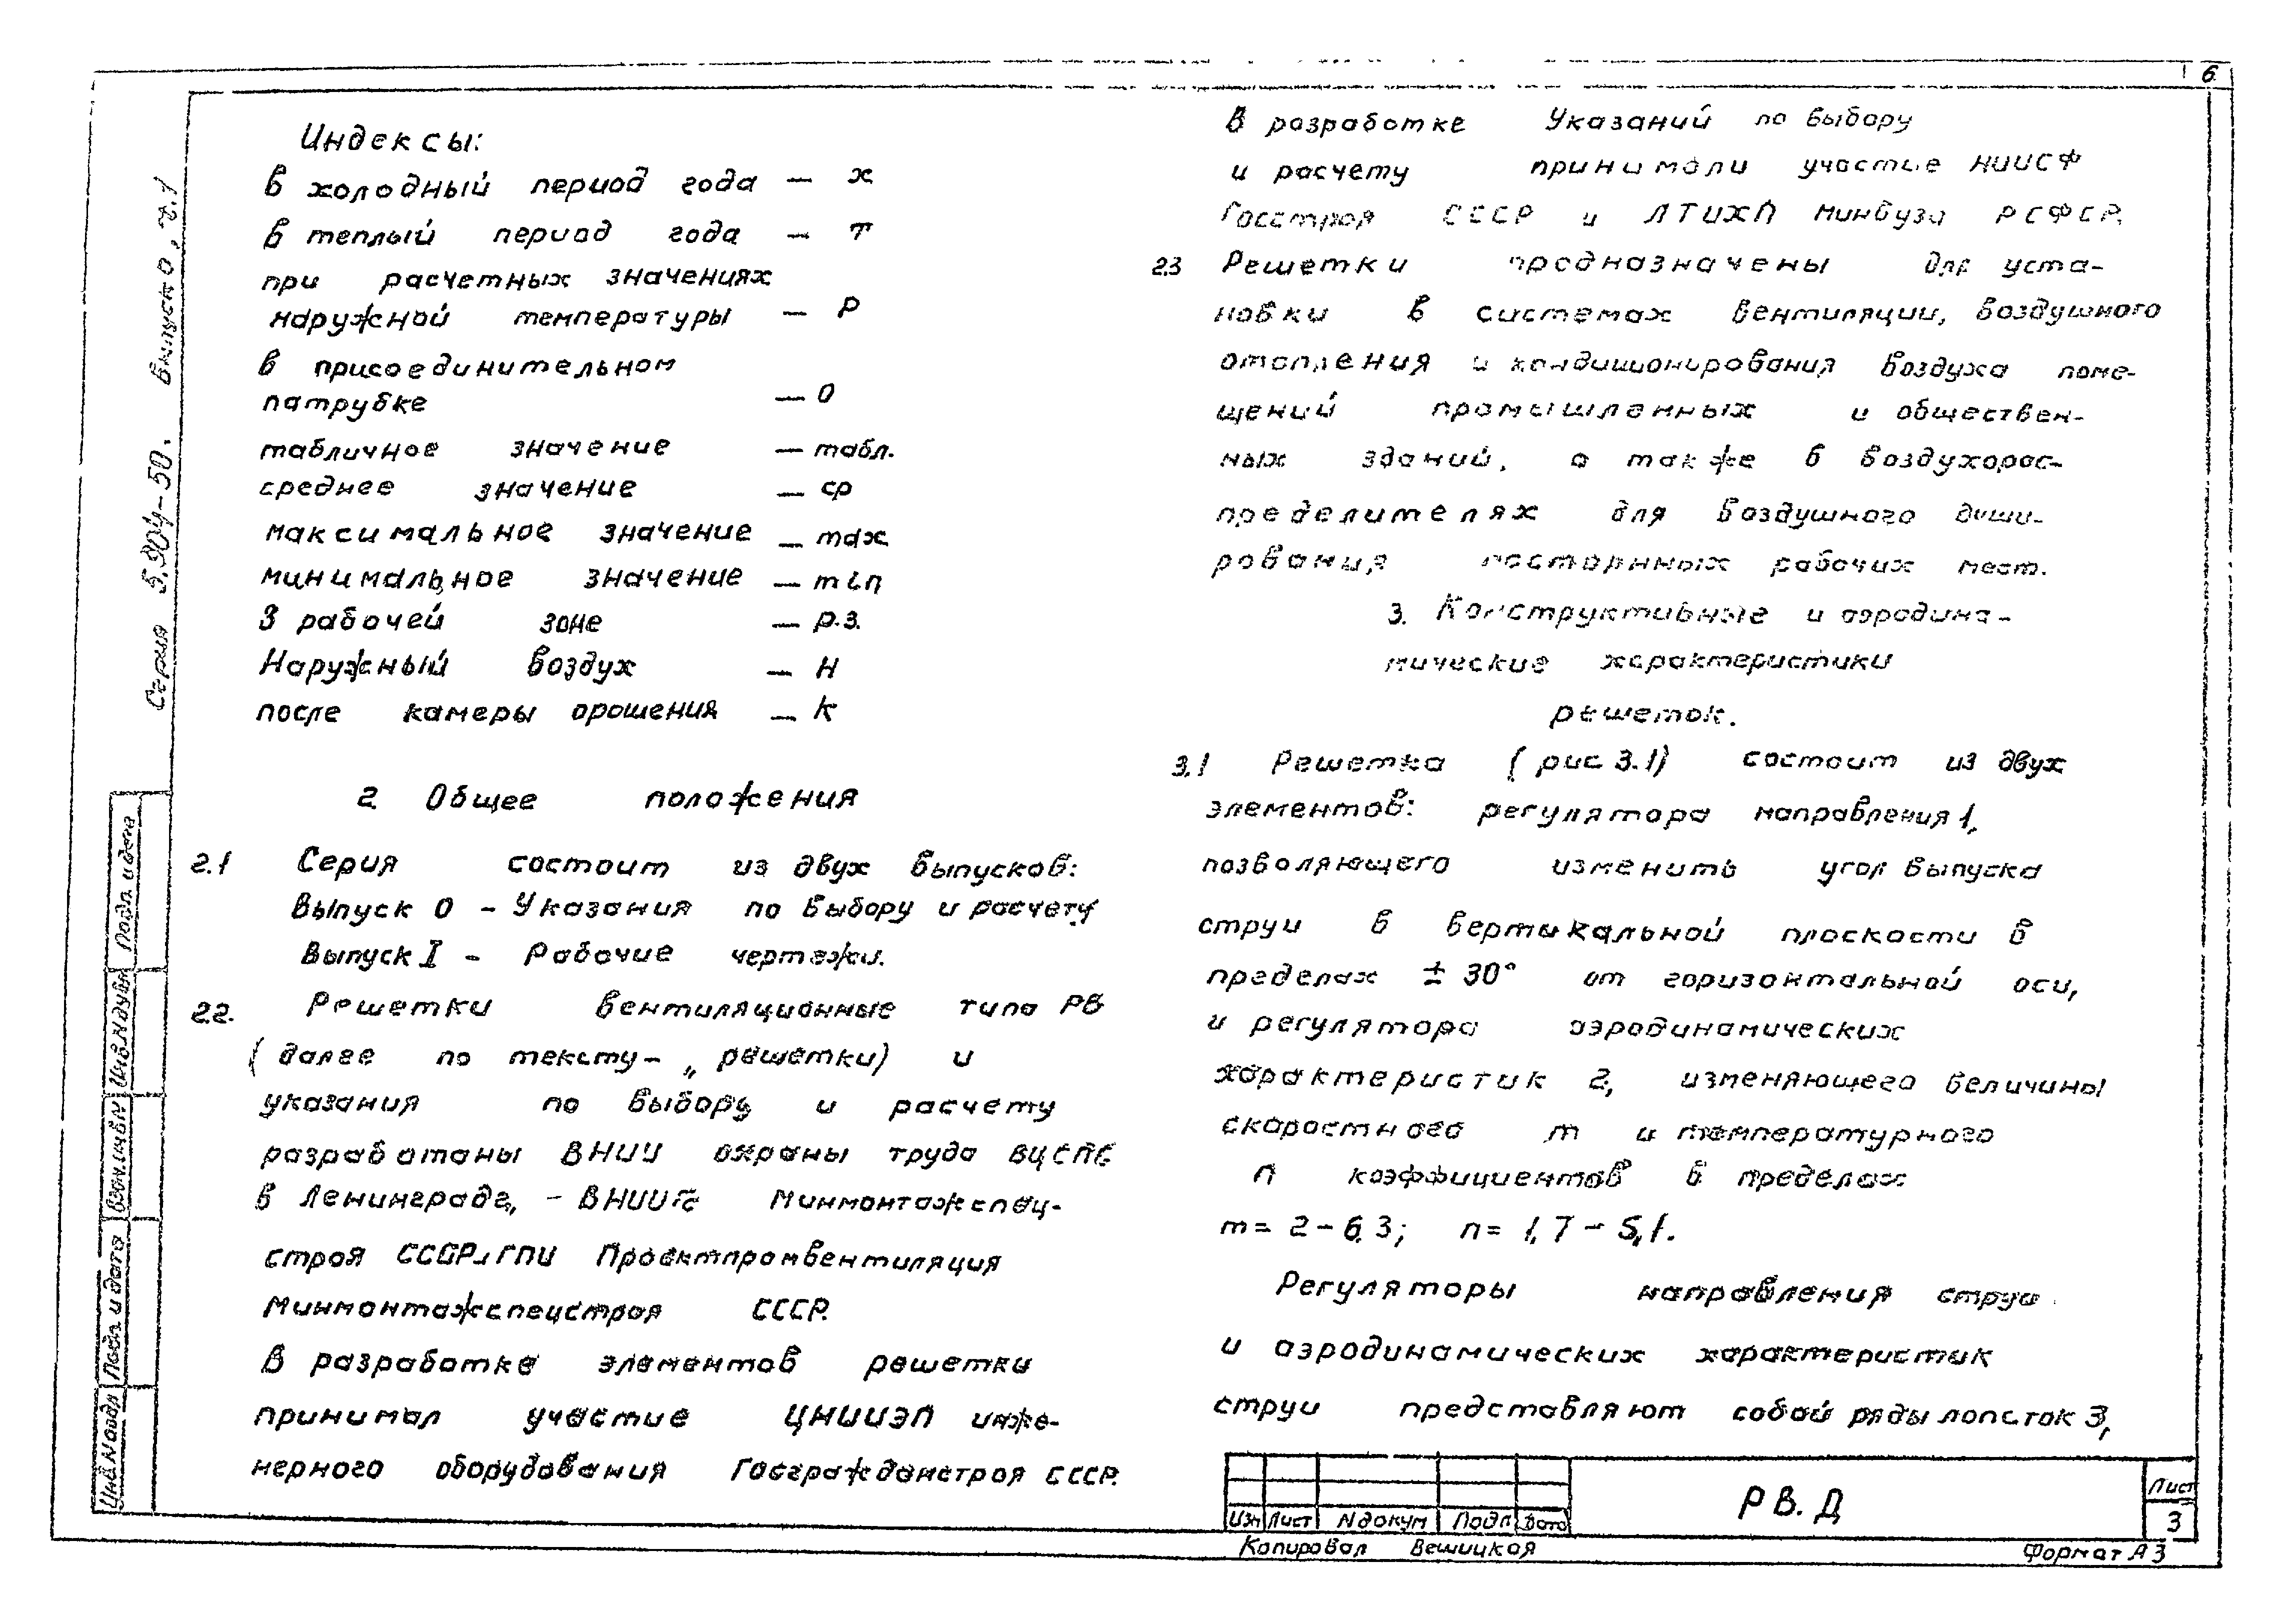 6
Индексы:
в холодный период года — х
в теплый период года — т
при расчетных значениях
наружной температуры — р
в присоединительном
патрубке — о
табличное значение — табл.
среднее значение — ср
максимальное значение — max
минимальное значение — min
В рабочей зоне — р.з.
Наружный воздух — н
после камеры орошения — к
2 Общее положения
2.1 Серия состоит из двух выпусков:
Выпуск 0 - Указания по выбору и расчету
Выпуск I - Рабочие чертежи.
2.2. Решетки вентиляционные типа РВ
(далее по тексту - „решетки) и
указания по выбору и расчету
разработаны ВНИИ охраны труда ВЦСПС
в Ленинграде, - ВНИИГС Минмонтажспец-
строя СССР, ГПИ Проектпромвентиляция
Минмонтажспецстроя СССР.
В разработке элементов решетки
принимал участие ЦНИИЭП инже-
нерного оборудования Госгражданстроя СССР.
В разработке Указаний по выбору
и расчету принимали участие НИИСФ
Госстроя СССР и ЛТИХП Минвуза РСФСР.
2.3 Решетки предназначены для уста-
новки в системах вентиляции, воздушного
отопления и кондиционирования воздуха поме-
щений промышленных и обществен-
ных зданий, а также в воздухорас-
пределителях для воздушного души-
рования посторнных рабочих мест.
3. Конструктивные и аэродина-
мические характеристики
решеток.
3.1 Решетка (рис 3.1) состоит из двух
элементов: регулятора направления 1,
позволяющего изменить угол выпуска
струи в вертикальной плоскости в
пределах ± 30° от горизонтальной оси,
и регулятора аэродинамических
характеристик 2, изменяющего величины
скоростного m и температурного
n коэффициентов в пределах
m = 2 - 6.3; n = 1,7 - 5,1.
Регуляторы направления струи
и аэродинамических характеристик
струи представляют собой ряды лопаток 3,
Серия 5.904-50. Выпуск 0, ч.1
Подп. и дата
Инв.N дубл
Взам.инв.N
Подп и дата
Инв N подл
Изм Лист N докум Подп Дата
РВ. Д
Лист
3
Копировал Вешицкая
Формат А3